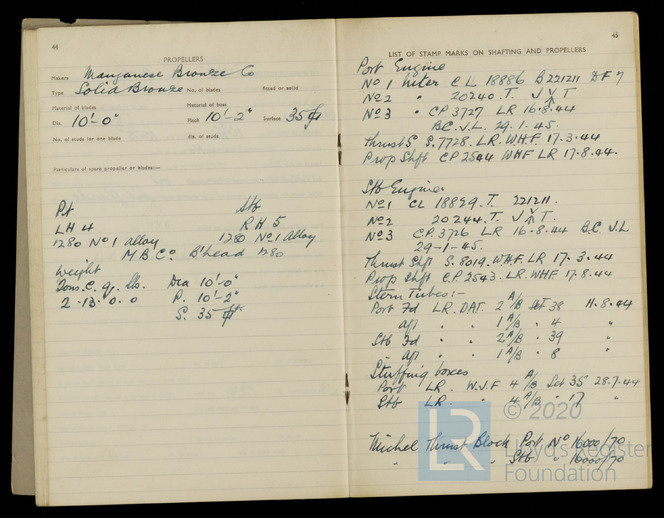 44
PROPELLERS
Makers Manganese Bronze Co
Type Solid Bronze No. of blades Fixed or solid
Material of blades Material of boss
Dia. 10'-0" Pitch 10'-2" Surface 35 ft
No. of studs for one blade dia. of studs
Particulars of spare propeller or blades:—
Pt Stb
LH 4 RH 5
1280 No 1 alloy 1280 No 1 Alloy
M B Co B'head 1280
Weight
Tons. C. q. lbs. Dia 10'-0"
2 . 13 . 0 . 0 P. 10'-2"
S. 35 ft
45
LIST OF STAMP MARKS ON SHAFTING AND PROPELLERS
Port Engine
No 1 Inter CL 18886 B221211 DF 7
No 2 " 20240.T. J V T
No 3 " CP 3727 LR 16.8.44
BC.J.L. 29-1-45.
Thrust S S.7728. L.R. W.H.F. 17.3.44
Prop Shft CP 2544 WHF LR 17.8.44.
Stb Engine.
No 1 CL 18829.T. 221211.
No 2 20244.T. J V T.
No 3 C.P. 3726 LR 16.8.44 BC J.L
29-1-45.
Thrust Shft S.8019. W.H.F. LR 17.3.44
Prop Shft C.P. 2543. L.R. WHF 17.8.44
Stern Tubes:-
Port Fd LR. DAT. 2 A/B Set 38 11.8.44
aft " " 1 A/B " 4 "
Stb Fd " " 2 A/B " 39 "
aft " " 1 A/B " 8 "
Stuffing boxes
Port LR. W.J.F 4 A/B Set 35 28.7.44
Stb LR. " 4 A/B " 17 "
Michel Thrust Block Port No 16000/70
" " " Stb " 16000/70
LR
© 2020
Lloyd's Register
Foundation